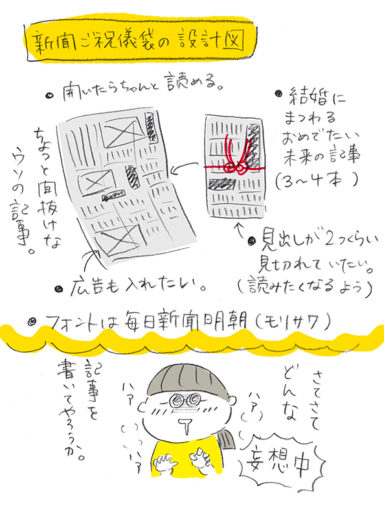 新聞ご祝儀袋の設計図
• 開いたらちゃんと読める。
• 結婚に
まつわる
おめでたい
未来の記事
(3〜4本)
ちょっと間抜けな
ウソの記事。
• 見出しが2つくらい
見切れていたい。
(読みたくなるよう)
• 広告も入れたい。
• フォントは毎日新聞明朝(モリサワ)
さてさて
どんな
記事を
書いてやろうか。
ハァ
ハァ
ハァ
ハァ
妄想中